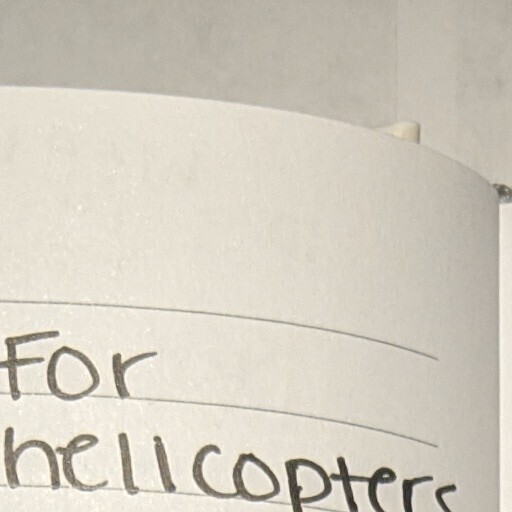 For
helicopters